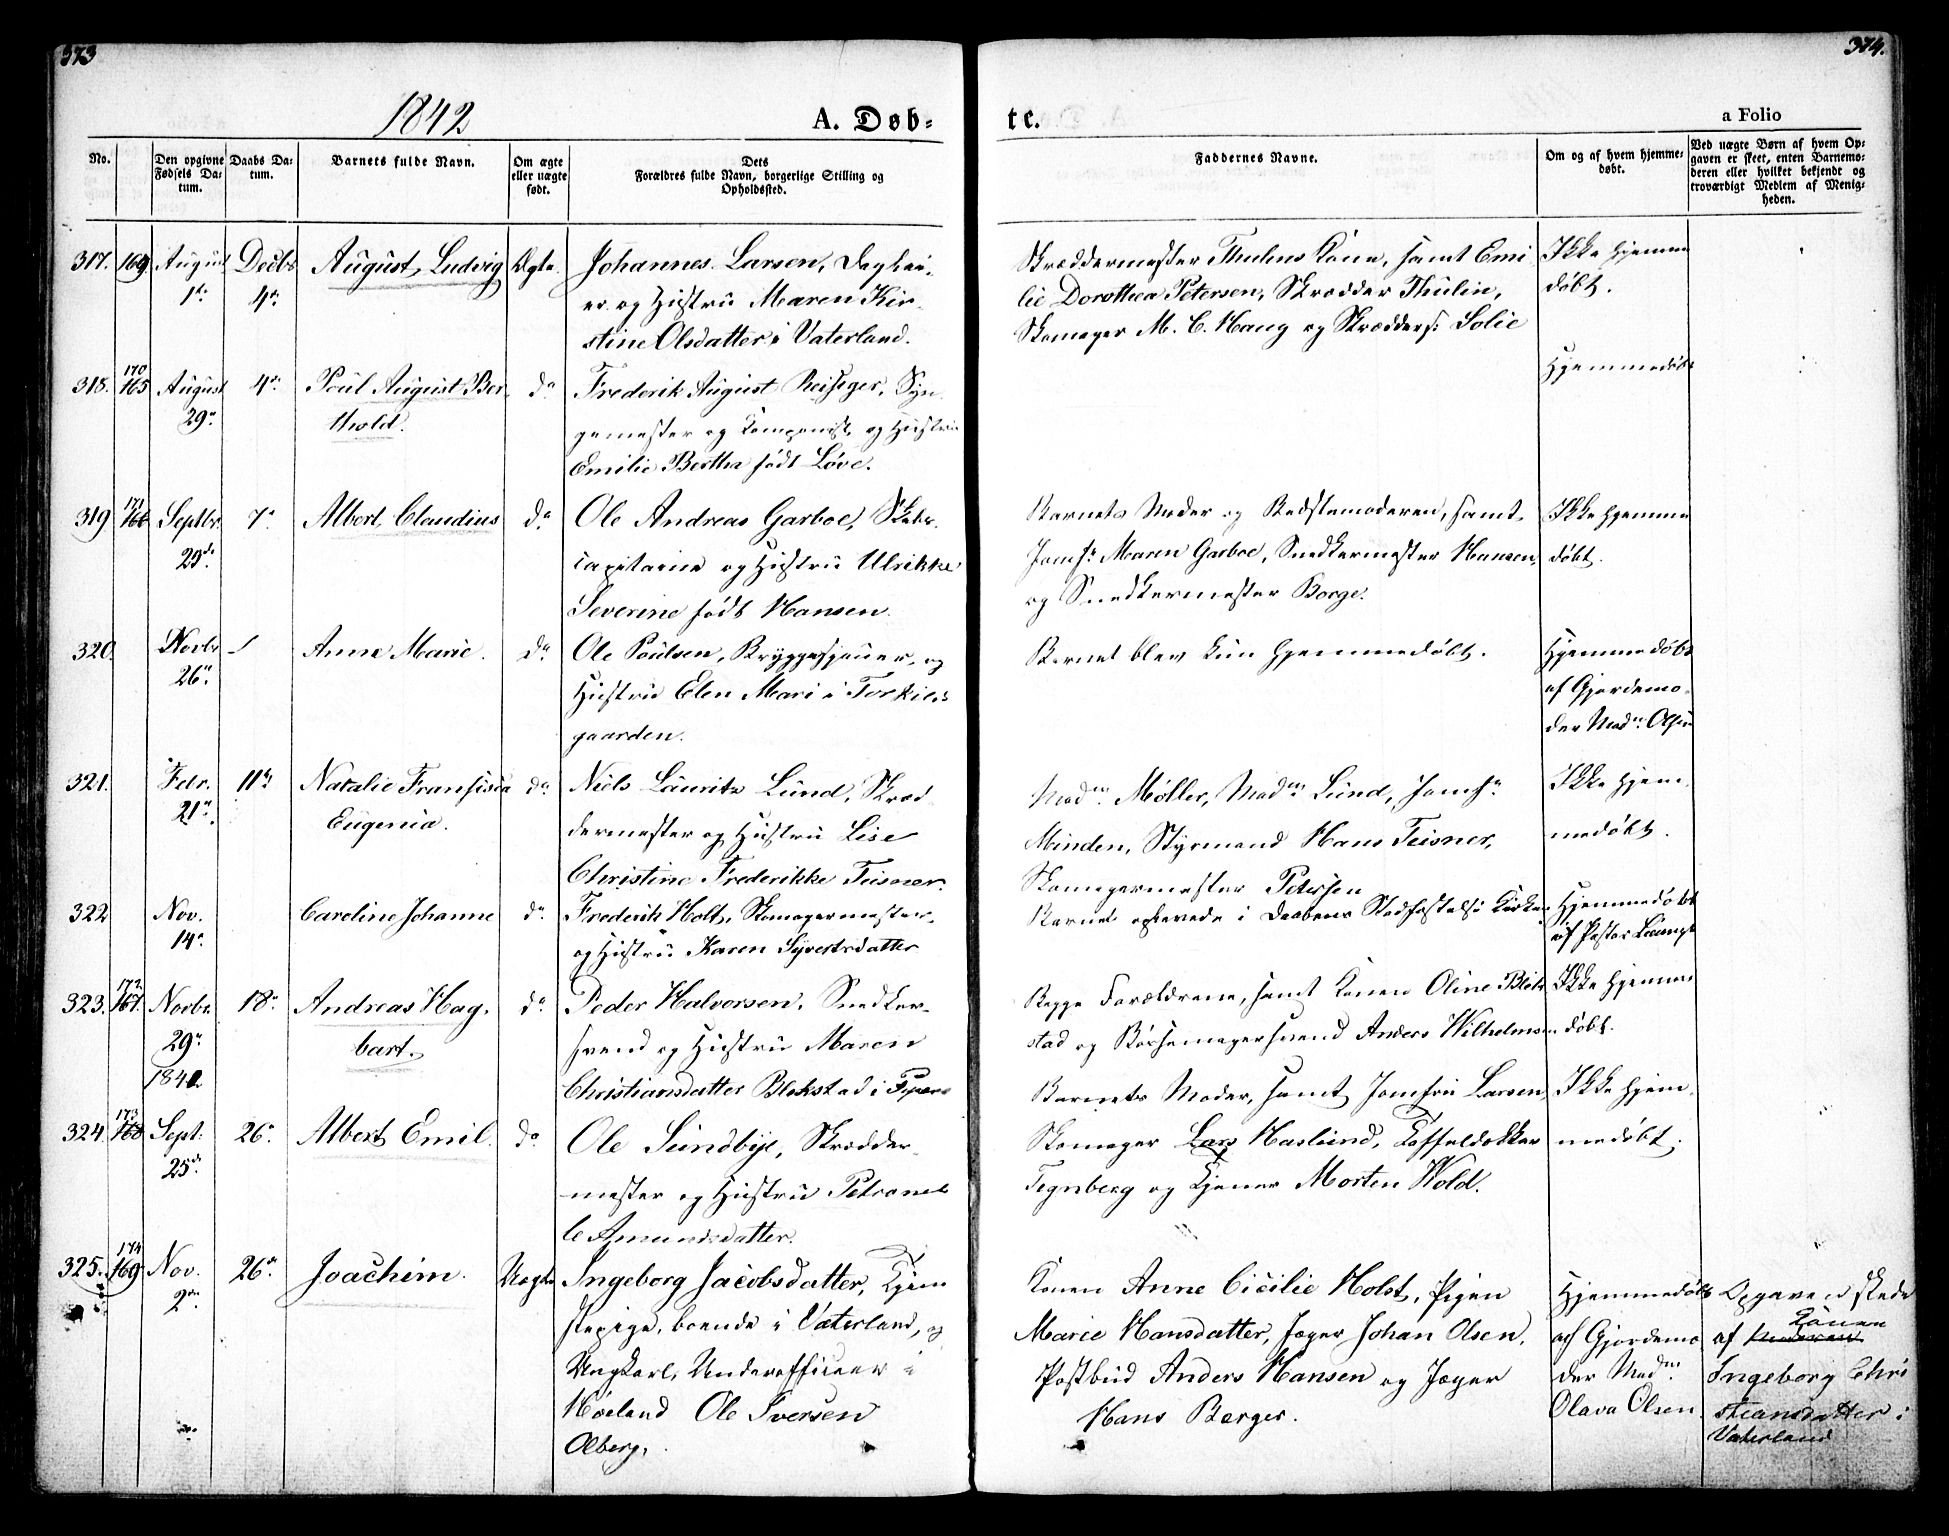 373
374.
1842
A. Døb-
te.
a Folio
No.
Den opgivne Fødsels Da-
tum.
Daabs Da-
tum.
Barnets fulde Navn.
Om ægte
eller uægte
født.
Dets
Forældres fulde Navn, borgerlige Stilling og
Opholdssted.
Faddernes Navne.
Om og af hvem hjemme-
døbt.
Ved uægte Børn af hvem Op-
gaven er skeet, enten Barnemo-
deren eller hvilket bekjendt og
troværdigt Medlem af Menig-
heden.
317. 169 August Decbr August Ludvig Ægte. Johannes Larsen, Daglei-
1ste 4de er og Hustru Maren Kir-
stine Olsdatter i Vaterland.
Skræddermester Thulins Kone, samt Emi
lie Dorothea Petersen, Skrædder Thulin,
Skomager M. C. Haug og Skrædders: Solie
Ikke hjemme
døbt.
170
318. 165 August 4de Poul August Ber do Frederik August Reissiger, Syn
29de thold. gemester og Componist og Hustru
Emilie Bertha født Løve.
Hjemmedøbt
171
319 166 Septbr. 7de Albert Claudius do Ole Andreas Garboe, Skibs
29de capitaine og Hustru Ulrikke
Severine født Hansen.
Barnets Moder og Bedstemoderen, samt
Jomfr Maren Garboe, Snedkermester Hansen,
og Snedkermester Borge.
Ikke hjemme
døbt.
320. Novbr Anne Marie. do Ole Poulsen, Bryggesjouer, og
26de Hustru Elen Mari i Torkild-
gaarden.
Barnet blev kun hjemmedøbt.
Hjemmedøbt
af Gjordemo-
der Madm. Olsen
321. Febr. 11te Natalie Fransisca do Niels Lauritz Lund, Skræd
21de Eugenia. dermester og Hustru Lise
Christine Frederikke Teisner.
Madm. Møller, Madm Lund, Jomfr
Minden, Styrmand Hans Teisner,
Skomagermester Petersen
Ikke hjem
medøbt.
322 Nov. Caroline Johanne do Frederik Holt, Skomagermester,
14de og Hustru Karen Syvertsdatter
Barnet opøvede i Daabens Stadfæstelse Kirken
Hjemmedøbt
af Pastor
172
323. 167. Novbr 18de Andreas Hag- do Peder Halvorsen, Snedker-
29de bart. svend og Hustru Maren
1841 Christiansdatter Blekstad i Piper
Begge Forældrene, samt Konen Oline Blek
stad og Børstemagersvend Anders Wilhelmsen
Ikke hjemme
døbt.
173
324. 168 Sept: 26de Albert Emil. do Ole Sundbye, Skrædder-
25de mester og Hustru Petronel
le Amundsdatter.
Barnets Moder, samt Jomfru Larsen
Skomager Lars Haslund, Toffeldækker
Tegnberg og Tjener Morten Wold.
Ikke hjem
medøbt.
174
325. 169 Nov. 26de Joachim. Uægte Ingeborg Jacobsdatter, Tjene
2den stepige, boende i Vaterland, og
Ungkarl, Underofficeer i
Høland Ole Iversen
Olberg.
Konen Anne Cicilie Holst, Pigen
Marie Hansdatter, Jæger Johan Olsen,
Postbud Anders Hansen og Jæger
Hans Berger.
Hjemmedøbt
af Gjordemo
der Madm
Olava Olsen.
Opgaven skede
Konen
af Moderen
Ingeborg Chri
stiansdatter i
Vaterland